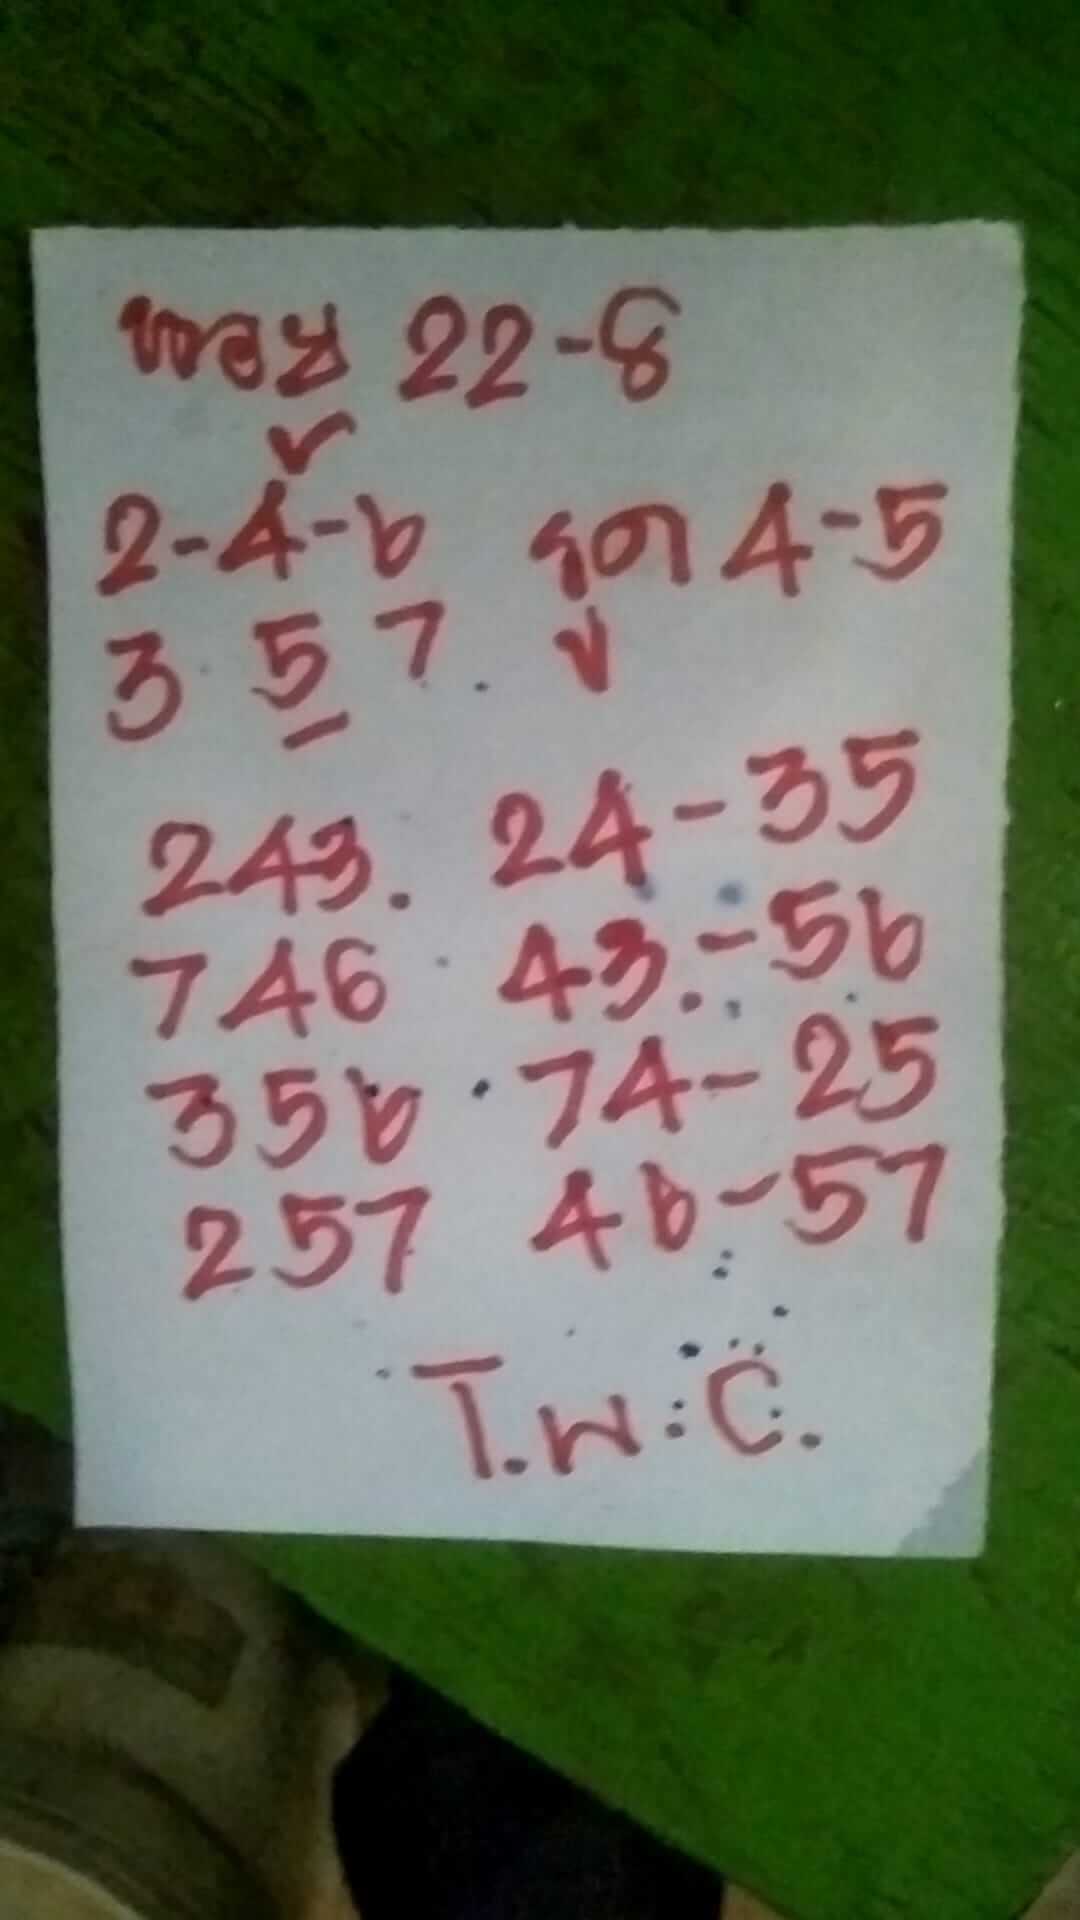 หอย 22-8
2-4-6 รูด 4-5
3 5 7.
243. 24-35
746 43.-56
356 74-25
257 46-57